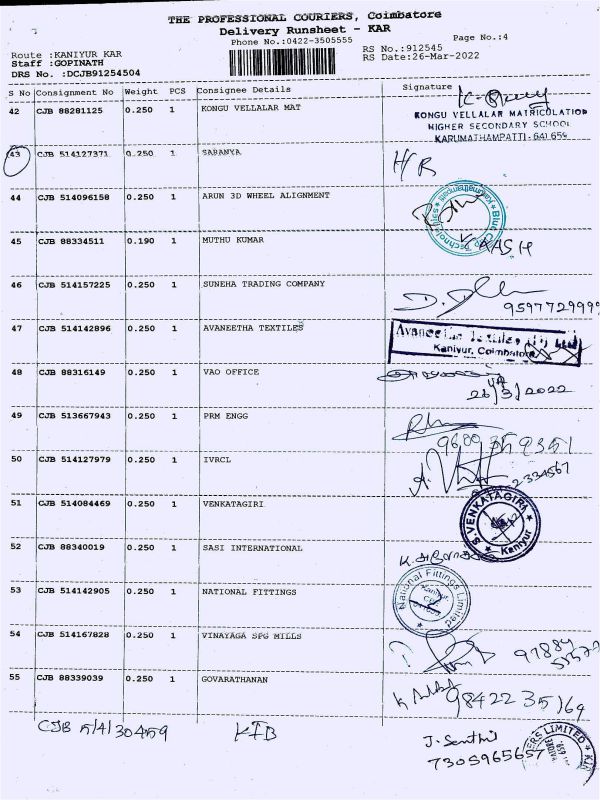 THE PROFESSIONAL COURIERS, Coimbatore
Delivery Runsheet - KAR
Phone No.:0422-3505555
Page No.:4
Route :KANIYUR KAR
RS No.:912545
Staff :GOPINATH
RS Date:26-Mar-2022
DRS No. :DCJB91254504
S No Consignment No Weight PCS Consignee Details Signature
42 CJB 88281125 0.250 1 KONGU VELLALAR MAT
KONGU VELLALAR MATRICULATION
HIGHER SECONDARY SCHOOL
KARUMATHAMPATTI - 641 659
43 CJB 514127371 0.250 1 SARANYA H/R
44 CJB 514096158 0.250 1 ARUN 3D WHEEL ALIGNMENT
Karumathampatti
45 CJB 88334511 0.190 1 MUTHU KUMAR
46 CJB 514157225 0.250 1 SUNEHA TRADING COMPANY
9597729999
47 CJB 514142896 0.250 1 AVANEETHA TEXTILES
Kaniyur, Coimbatore
48 CJB 88316149 0.250 1 VAO OFFICE
26/3/2022
49 CJB 513667943 0.250 1 PRM ENGG
50 CJB 514127979 0.250 1 IVRCL
2334567
51 CJB 514084469 0.250 1 VENKATAGIRI
S.VENKATAGIRI
Kaniyur
52 CJB 88340019 0.250 1 SASI INTERNATIONAL
53 CJB 514142905 0.250 1 NATIONAL FITTINGS
National Fittings Limited
Kaniyur
54 CJB 514167828 0.250 1 VINAYAGA SPG MILLS
55 CJB 88339039 0.250 1 GOVARATHANAN
98422 35169
CJB 514130459 KTB
J. Senthil
7305965657